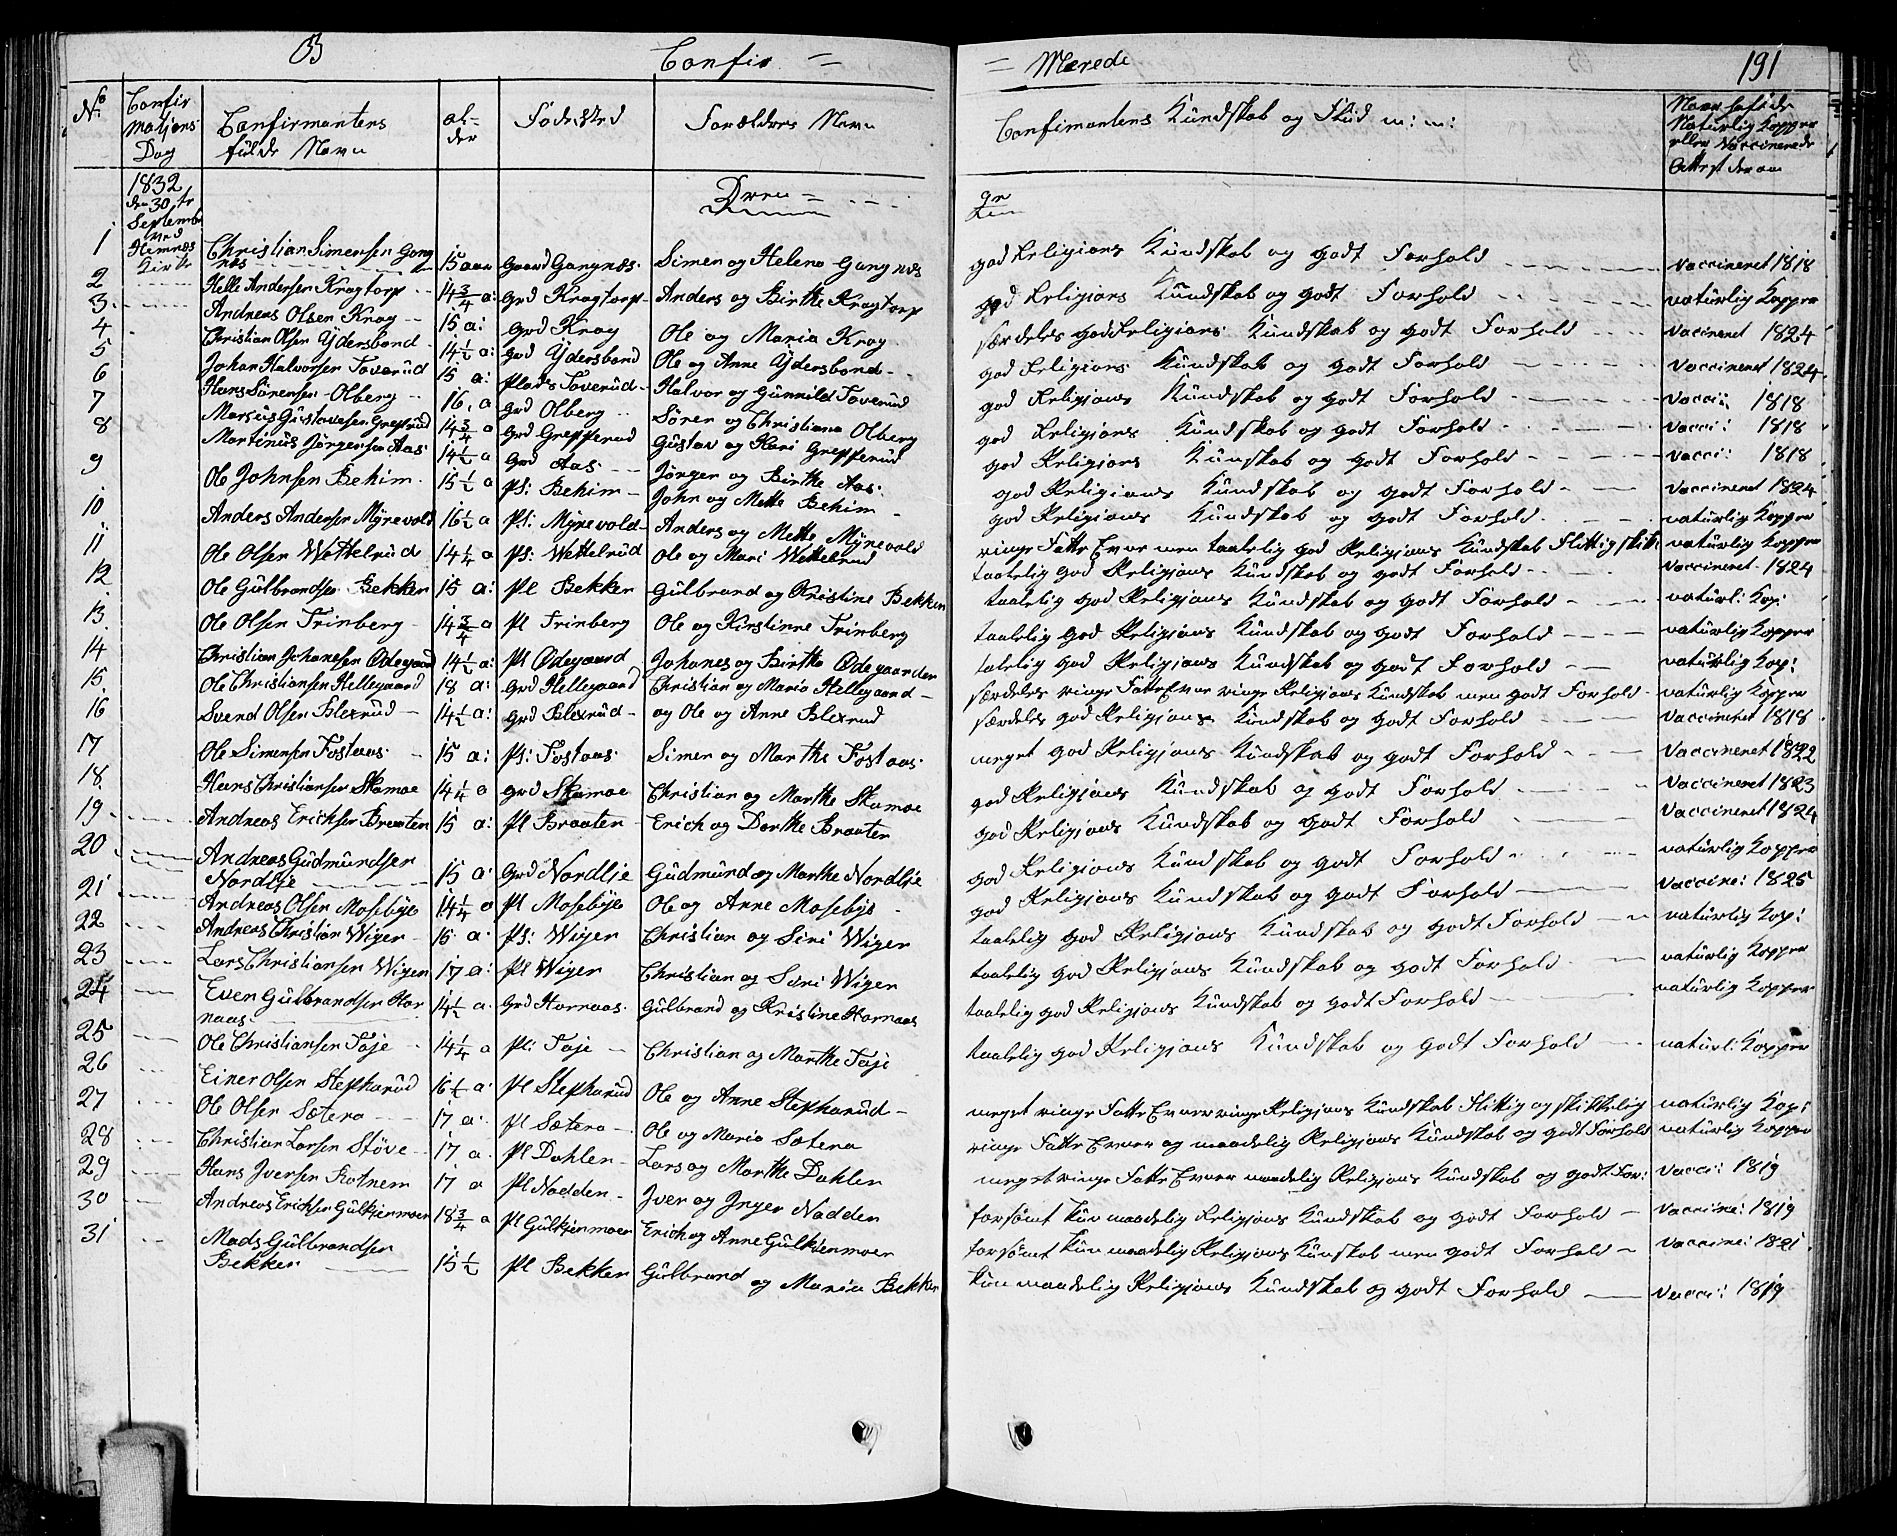 B
Confir =
= Merede
191
No
Confir
mations
Dag
Confirmantens
fulde Navn
al-
der
Fødested
Forældres Navn
Confirmantens Kundskab og Flid m: m:
Naar hafde
Naturlig Kopper
eller Vaccinerede
Attest derom
1832
den 30te
Septemb
ved
Hemnæs
Kirke
Dren = gr
1 Christian Simensen Gang
næs 15 aar Gaard Gangnæs Simen og Helena Gangnæs god Religions Kundskab og godt Forhold Vaccineret 1818
2 Helle Andersen Kragtorp 14 3/4 a: Grd Kragtorp Anders og Birthe Kragtorp god Religions Kundskab og godt Forhold naturlig Kopper
3 Andreas Olsen Krog 15 a: Grd Krog Ole og Maria Krog særdeles god Religions Kundskab og godt Forhold Vaccineret 1824
4 Christian Olsen Ydersbond 14 1/2 a: Grd Ydersbond Ole og Anne Ydersbond god Religions Kundskab og godt Forhold Vaccineret 1824
5 Johan Halvorsen Toverud 15 a: Plads Toverud Halvor og Gunnild Toverud god Religions Kundskab og godt Forhold Vacci: 1818
6 Hans Sørensen Olberg 16 a Grd Olberg Søren og Christiana Olberg god Religions Kundskab og godt Forhold Vacci: 1818
7 Marcus Gustavesen Grepperud 14 3/4 a Grd Grepperud Gustav og Kari Grepperud god Religions Kundskab og godt Forhold Vacci: 1818
8 Martinus Jørgensen Aas 14 1/2 a Grd Aas Jørgen og Birthe Aas: god Religions Kundskab og godt Forhold Vaccineret 1824
9 Ole Johnsen Behim 15 1/2 a Pl: Behim John og Mette Behim god Religions Kundskab og godt Forhold naturlig Kopper
10 Anders Andersen Myrevold 16 1/2 a Pl: Myrevold Anders og Mette Myrevold ringe Fatte Evne men taalelig god Religions Kundskab Flittig skik: naturlig Kopper
11 Ole Olsen Wettelrud 14 1/4 a Pl: Wettelrud Ole og Mari Wettelrud taalelig god Religions Kundskab og godt Forhold Vaccineret 1824
12 Ole Gulbrandsen Bekken 15 a: Pl Bekken Gulbrand og Kristine Bekken taalelig god Religions Kundskab og godt Forhold naturl: Kop:
13 Ole Olsen Trinberg 14 3/4 a Pl Trinberg Ole og Kirstinne Trinberg taalelig god Religions Kundskab og godt Forhold naturlig Kopper
14 Christian Johanesen Ødegaard 14 1/2 a: Pl Ødegaard Johanes og Birthe Ødegaarden talelig god Religions Kundskab og godt Forhold naturlig Kop:
15 Ole Christiansen Hellegaard 18 a: Grd Hellegaard Christian og Maria Hellegaard særdeles ringe Fatte Evne ringe Religions Kundskab men godt Forhold naturlig Kopper
16 Svend Olsen Blexrud 14 1/2 a: Grd Blexrud og Ole og Anne Blexrud særdeles god Religions Kundskab og godt Forhold Vaccineret 1818
17 Ole Simensen Fostaas 15 a: Pl: Fostaas Simen og Marthe Fostaas meget god Religions Kundskab og godt Forhold Vaccineret 1822
18 Hans Christiansen Skamoe 14 1/4 a Grd Skamoe Christian og Marthe Skamoe god Religions Kundskab og godt Forhold Vaccineret 1823
19 Andreas Erichsen Braaten 15 a: Pl Braaten Erich og Dorthe Braaten god Religions Kundskab og godt Forhold Vaccineret 1824
20 Andreas Gudmundsen
Nordlje 15 a: Grd Nordlje Gudmund og Marthe Nordlje god Religions Kundskab og godt Forhold naturlig Kopper
21 Andreas Olsen Mosebye 14 1/4 a Pl Mosebye Ole og Anne Mosebye god Religions Kundskab og godt Forhold Vaccine: 1825
22 Andreas Christian Wiger 15 a: Pl: Wiger Christian og Siri Wiger taalelig god Religions Kundskab og godt Forhold naturlig Kop:
23 Lars Christiansen Wiger 17 a: Pl Wiger Christian og Siri Wiger taalelig god Religions Kundskab og godt Forhold naturlig Kopper
24 Even Gulbrandsen Hor
naas 14 1/2 a: Grd Hornaas Gulbrand og Kristine Hornaas taalelig god Religions Kundskab og godt Forhold naturlig Kopper
25 Ole Christiansen Taje 14 1/4 a Pl: Taje Christian og Marthe Taje taalelig god Religions Kundskab og godt Forhold naturl: Kopper
26 Einer Olsen Stepharud 16 1/2 a: Pl Stepharud Ole og Anne Stepharud meget ringe Fatte Evner ringe Religions Kundskab Flittig og skikkelig naturlig Kop:
27 Ole Olsen Sætera 17 a: Pl Sætera Ole og Maria Sætera ringe Fatte Evner og maadelig Religions Kundskab og godt Forhold naturlig Kopper
28 Christian Larsen Støve 17 a. Pl Dahlen Lars og Marthe Dahlen meget ringe Fatte Evner maadelig Religions Kundskab og godt For: Vacci: 1819
29 Hans Iversen Kotnem 17 a Pl Nadden Iver og Inger Nadden forsømt kun maadelig Religions Kundskab og godt Forhold Vaccine: 1819
30 Andreas Erichsen Gulkjenmoer 18 3/4 a Pl Gulkjenmoer Erich og Anne Gulkjenmoer forsømt kun maadelig Religions Kunskab men godt Forhold Vaccine: 1821
31 Mads Gulbrandsen
Bekken 15 1/2 Pl Bekken Gulbrand og Maria Bekken kun maadelig Religions Kundskab og godt Forhold Vacci: 1819